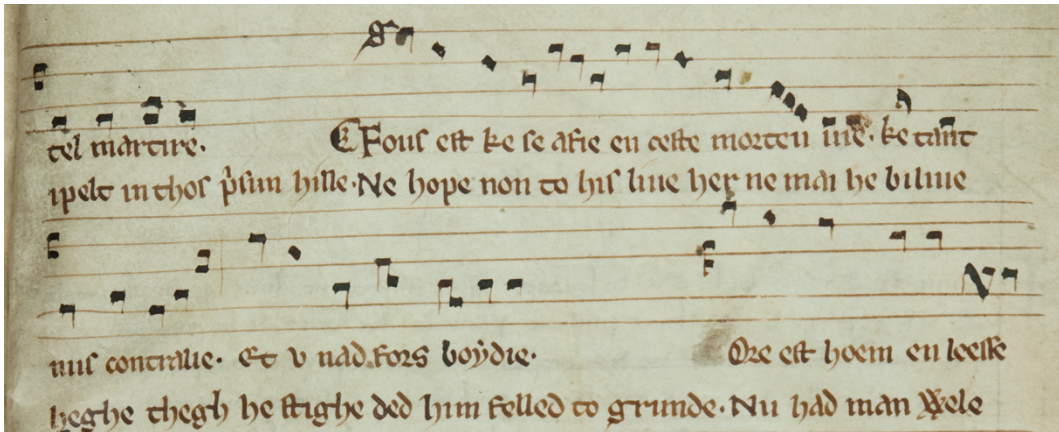 tel martire. Fous est ke se afie en ceste morteu uie. ke tant
ipelt in thos p̓sun hille. Ne hope non to his liue her ne mai he biliue
nus contralie. Et v nad fors boẏdie. Ore est hoem en leesse
heghe thegh he stighe ded him felled to grunde. Nu had man wele